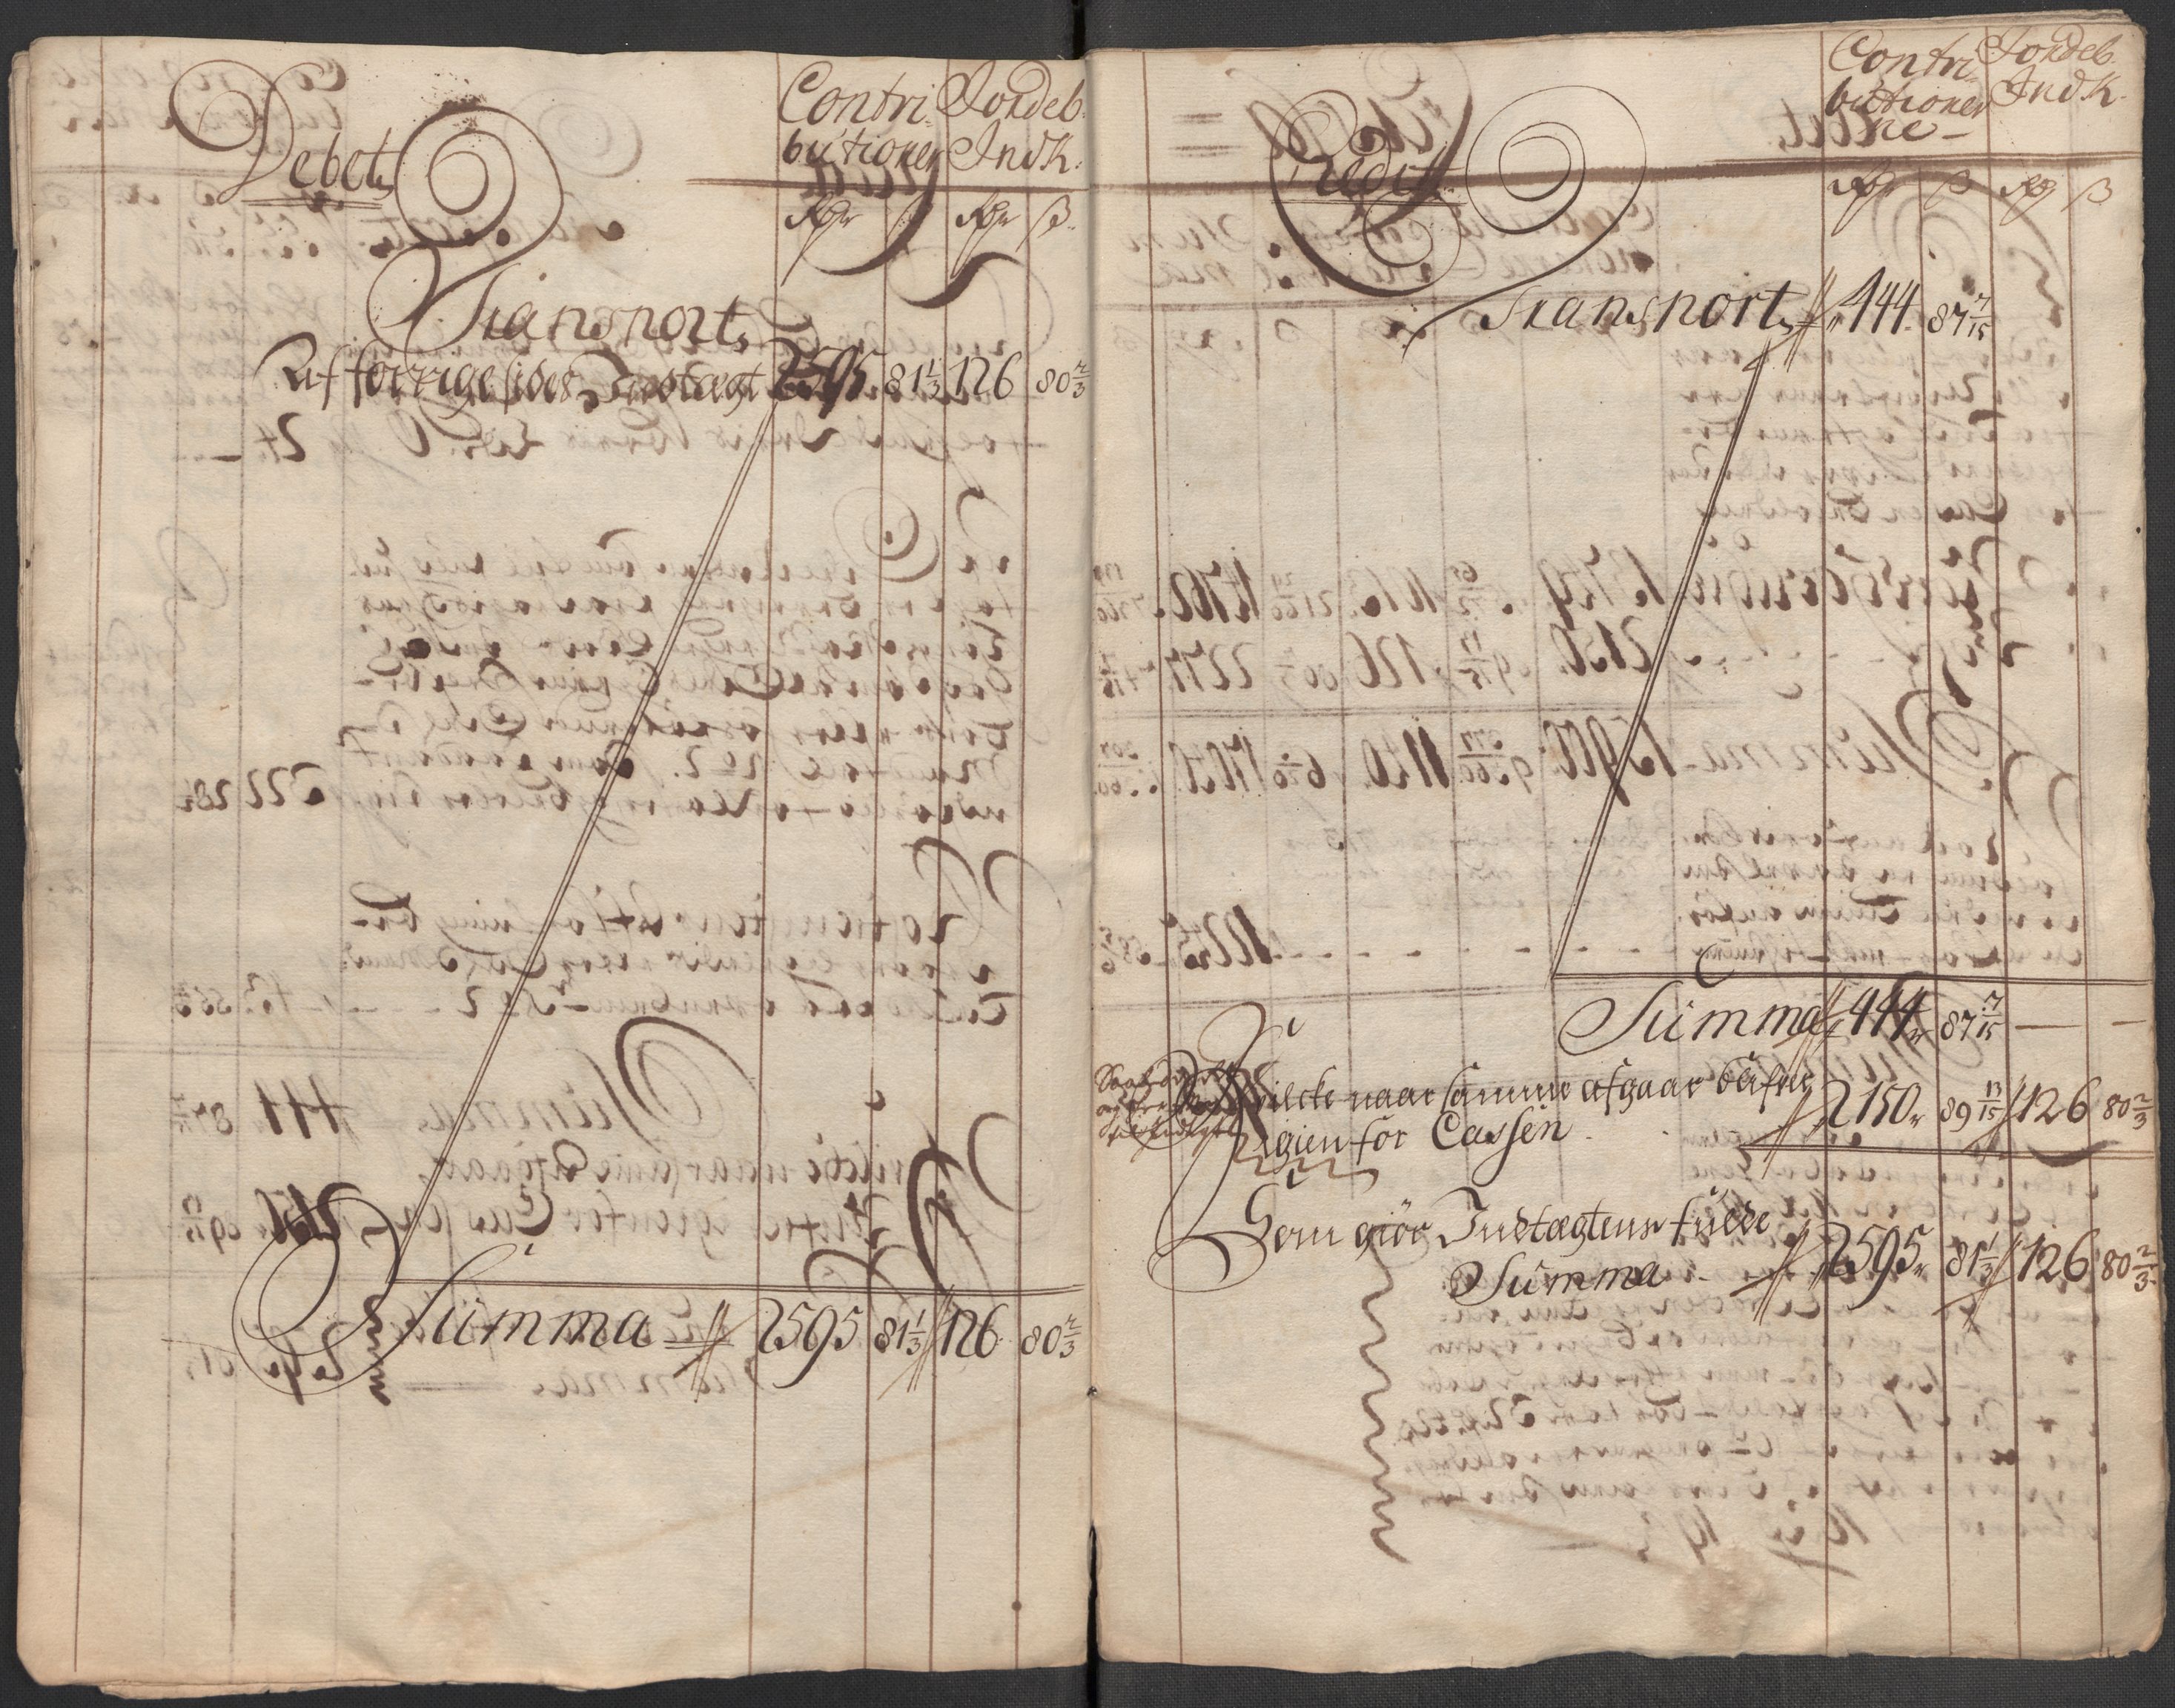 Debet
Contri Jordeb
butioner Indk:
Rdr ß Rdr ß
Transport
Af forrige sides Indtægt 2595 81 1/3 126 80 2/3
Summa 2595 81 1/3 126 80 2/3
Credit
Contri Jordeb
butioner Indk
ne
Rdr ß Rdr ß
Transport 444 87 7/15
Summa 444 87 7/15 — —
Hvilcke naar samme afgaar
igien for Cassen 2150 89 13/15 126 80 2/3
Som giör Indtægtens fulde
Summa 2595 81 1/3 126 80 2/3